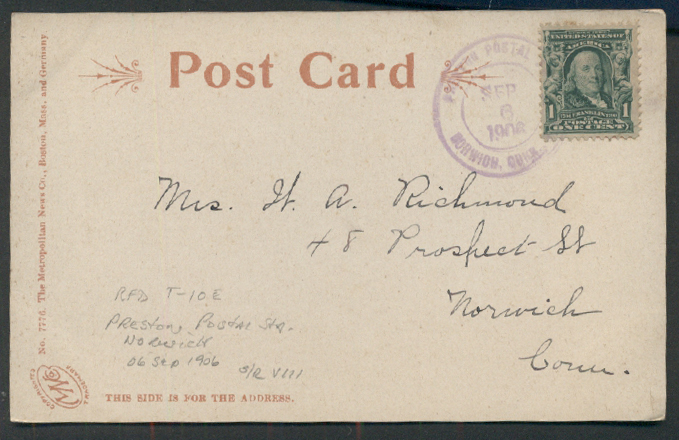 Post Card
POSTAL
SEP
6
1906
NORWICH, CONN.
UNITED STATES OF
1 1
FRANKLIN
POSTAGE
ONE CENT
No. 7776. The Metropolitan News Co., Boston, Mass. and Germany.
Mrs. H. A. Richmond
48 Prospect St
Norwich
Conn.
RFD T-10E
PRESTON, POSTAL STA.
NORWICH
06 SEP 1906
S/R VIII
THIS SIDE IS FOR THE ADDRESS.